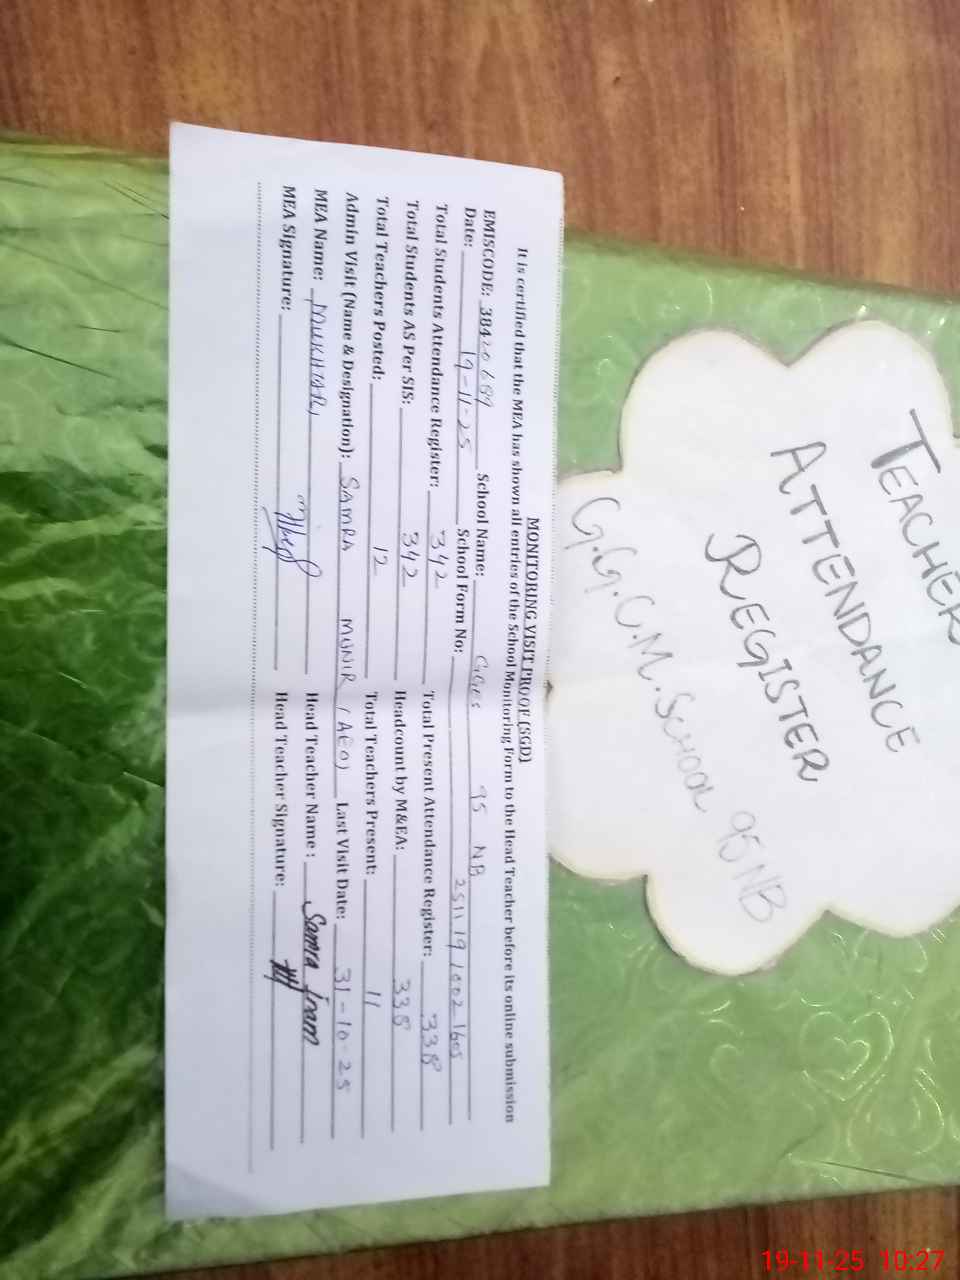 TEACHER
ATTENDANCE
REGISTER
G.G.C.M. School 95NB
MONITORING VISIT PROOF (SGD)
It is certified that the MEA has shown all entries of the School Monitoring Form to the Head Teacher before its online submission
EMISCODE: 38420689 School Name: GGCS 95 NB
Date: 19-11-25 School Form No: 25111910021605
Total Students Attendance Register: 342 Total Present Attendance Register: 338
Total Students AS Per SIS: 342 Headcount by M&EA: 338
Total Teachers Posted: 12 Total Teachers Present: 11
Admin Visit (Name & Designation): SAMRA MUNIR (AEO) Last Visit Date: 31-10-25
MEA Name: MUKHTAR Head Teacher Name: Samra Inam
MEA Signature: Head Teacher Signature:
19-11-25 10:27